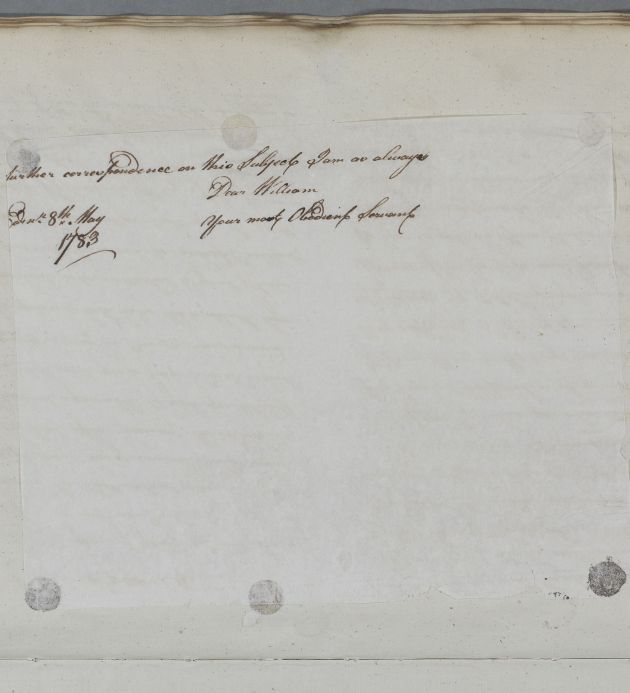 further correspondence on this Subject I am as always
Dear William
8th. May
Your most Obedient Servant
1783